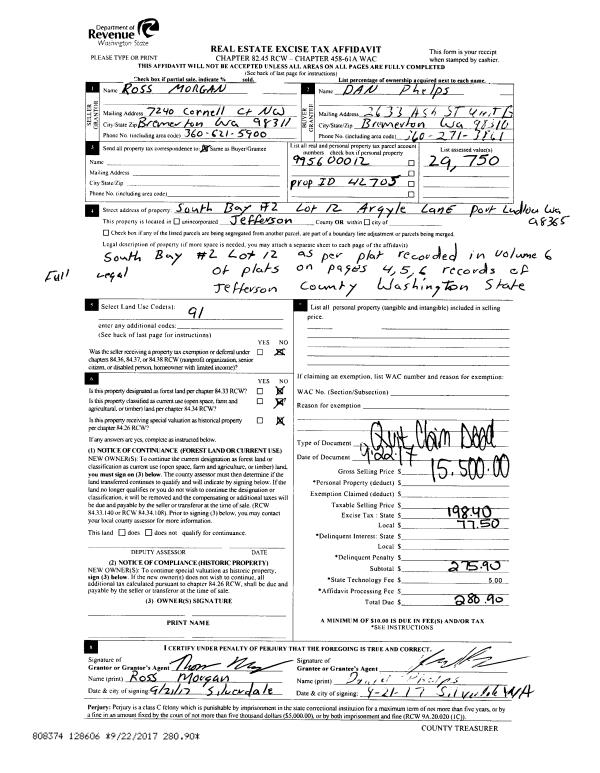 Department of
Revenue
Washington State
PLEASE TYPE OR PRINT
REAL ESTATE EXCISE TAX AFFIDAVIT
CHAPTER 82.45 RCW – CHAPTER 458-61A WAC
This form is your receipt
when stamped by cashier.
THIS AFFIDAVIT WILL NOT BE ACCEPTED UNLESS ALL AREAS ON ALL PAGES ARE FULLY COMPLETED
(See back of last page for instructions)
Check box if partial sale, indicate % sold. List percentage of ownership acquired next to each name.
1 Name Ross Morgan
SELLER GRANTOR
Mailing Address 7240 Cornell Ct NW
City/State/Zip Bremerton Wa 98311
Phone No. (including area code) 360-621-5900
2 Name DAN Phelps
BUYER GRANTEE
Mailing Address 2633 Ash ST Unit B
City/State/Zip Bremerton Wa 98310
Phone No. (including area code) 360-271-3861
3 Send all property tax correspondence to: Same as Buyer/Grantee
Name
Mailing Address
City/State/Zip
Phone No. (including area code)
List all real and personal property tax parcel account
numbers – check box if personal property
995600012
prop ID 42705
List assessed value(s)
29,750
4 Street address of property: South Bay #2 Lot 12 Argyle Lane Port Ludlow Wa 98365
This property is located in unincorporated Jefferson County OR within city of
Check box if any of the listed parcels are being segregated from another parcel, are part of a boundary line adjustment or parcels being merged.
Legal description of property (if more space is needed, you may attach a separate sheet to each page of the affidavit)
South Bay #2 Lot 12 as per plat recorded in volume 6
Full Legal of plats on pages 4,5,6 records of
Jefferson County Washington State
5 Select Land Use Code(s):
91
enter any additional codes:
(See back of last page for instructions)
YES NO
Was the seller receiving a property tax exemption or deferral under
chapters 84.36, 84.37, or 84.38 RCW (nonprofit organization, senior
citizen, or disabled person, homeowner with limited income)?
6
YES NO
Is this property designated as forest land per chapter 84.33 RCW?
Is this property classified as current use (open space, farm and
agricultural, or timber) land per chapter 84.34 RCW?
Is this property receiving special valuation as historical property
per chapter 84.26 RCW?
If any answers are yes, complete as instructed below.
(1) NOTICE OF CONTINUANCE (FOREST LAND OR CURRENT USE)
NEW OWNER(S): To continue the current designation as forest land or
classification as current use (open space, farm and agriculture, or timber) land,
you must sign on (3) below. The county assessor must then determine if the
land transferred continues to qualify and will indicate by signing below. If the
land no longer qualifies or you do not wish to continue the designation or
classification, it will be removed and the compensating or additional taxes will
be due and payable by the seller or transferor at the time of sale. (RCW
84.33.140 or RCW 84.34.108). Prior to signing (3) below, you may contact
your local county assessor for more information.
This land does does not qualify for continuance.
DEPUTY ASSESSOR DATE
(2) NOTICE OF COMPLIANCE (HISTORIC PROPERTY)
NEW OWNER(S): To continue special valuation as historic property,
sign (3) below. If the new owner(s) does not wish to continue, all
additional tax calculated pursuant to chapter 84.26 RCW, shall be due and
payable by the seller or transferor at the time of sale.
(3) OWNER(S) SIGNATURE
PRINT NAME
7 List all personal property (tangible and intangible) included in selling
price.
If claiming an exemption, list WAC number and reason for exemption:
WAC No. (Section/Subsection)
Reason for exemption
Type of Document Quit Claim Deed
Date of Document 9-22-17
Gross Selling Price $ 15,500.00
*Personal Property (deduct) $
Exemption Claimed (deduct) $
Taxable Selling Price $
Excise Tax : State $ 198.40
Local $ 77.50
*Delinquent Interest: State $
Local $
*Delinquent Penalty $
Subtotal $ 275.90
*State Technology Fee $ 5.00
*Affidavit Processing Fee $
Total Due $ 280.90
A MINIMUM OF $10.00 IS DUE IN FEE(S) AND/OR TAX
*SEE INSTRUCTIONS
8 I CERTIFY UNDER PENALTY OF PERJURY THAT THE FOREGOING IS TRUE AND CORRECT.
Signature of
Grantor or Grantor's Agent
Name (print) Ross Morgan
Date & city of signing: 9/21/17 Silverdale
Signature of
Grantee or Grantee's Agent
Name (print) Daniel Phelps
Date & city of signing: 9-21-17 Silverdale WA
Perjury: Perjury is a class C felony which is punishable by imprisonment in the state correctional institution for a maximum term of not more than five years, or by
a fine in an amount fixed by the court of not more than five thousand dollars ($5,000.00), or by both imprisonment and fine (RCW 9A.20.020 (1C)).
COUNTY TREASURER
808374 128606 *9/22/2017 280.90*